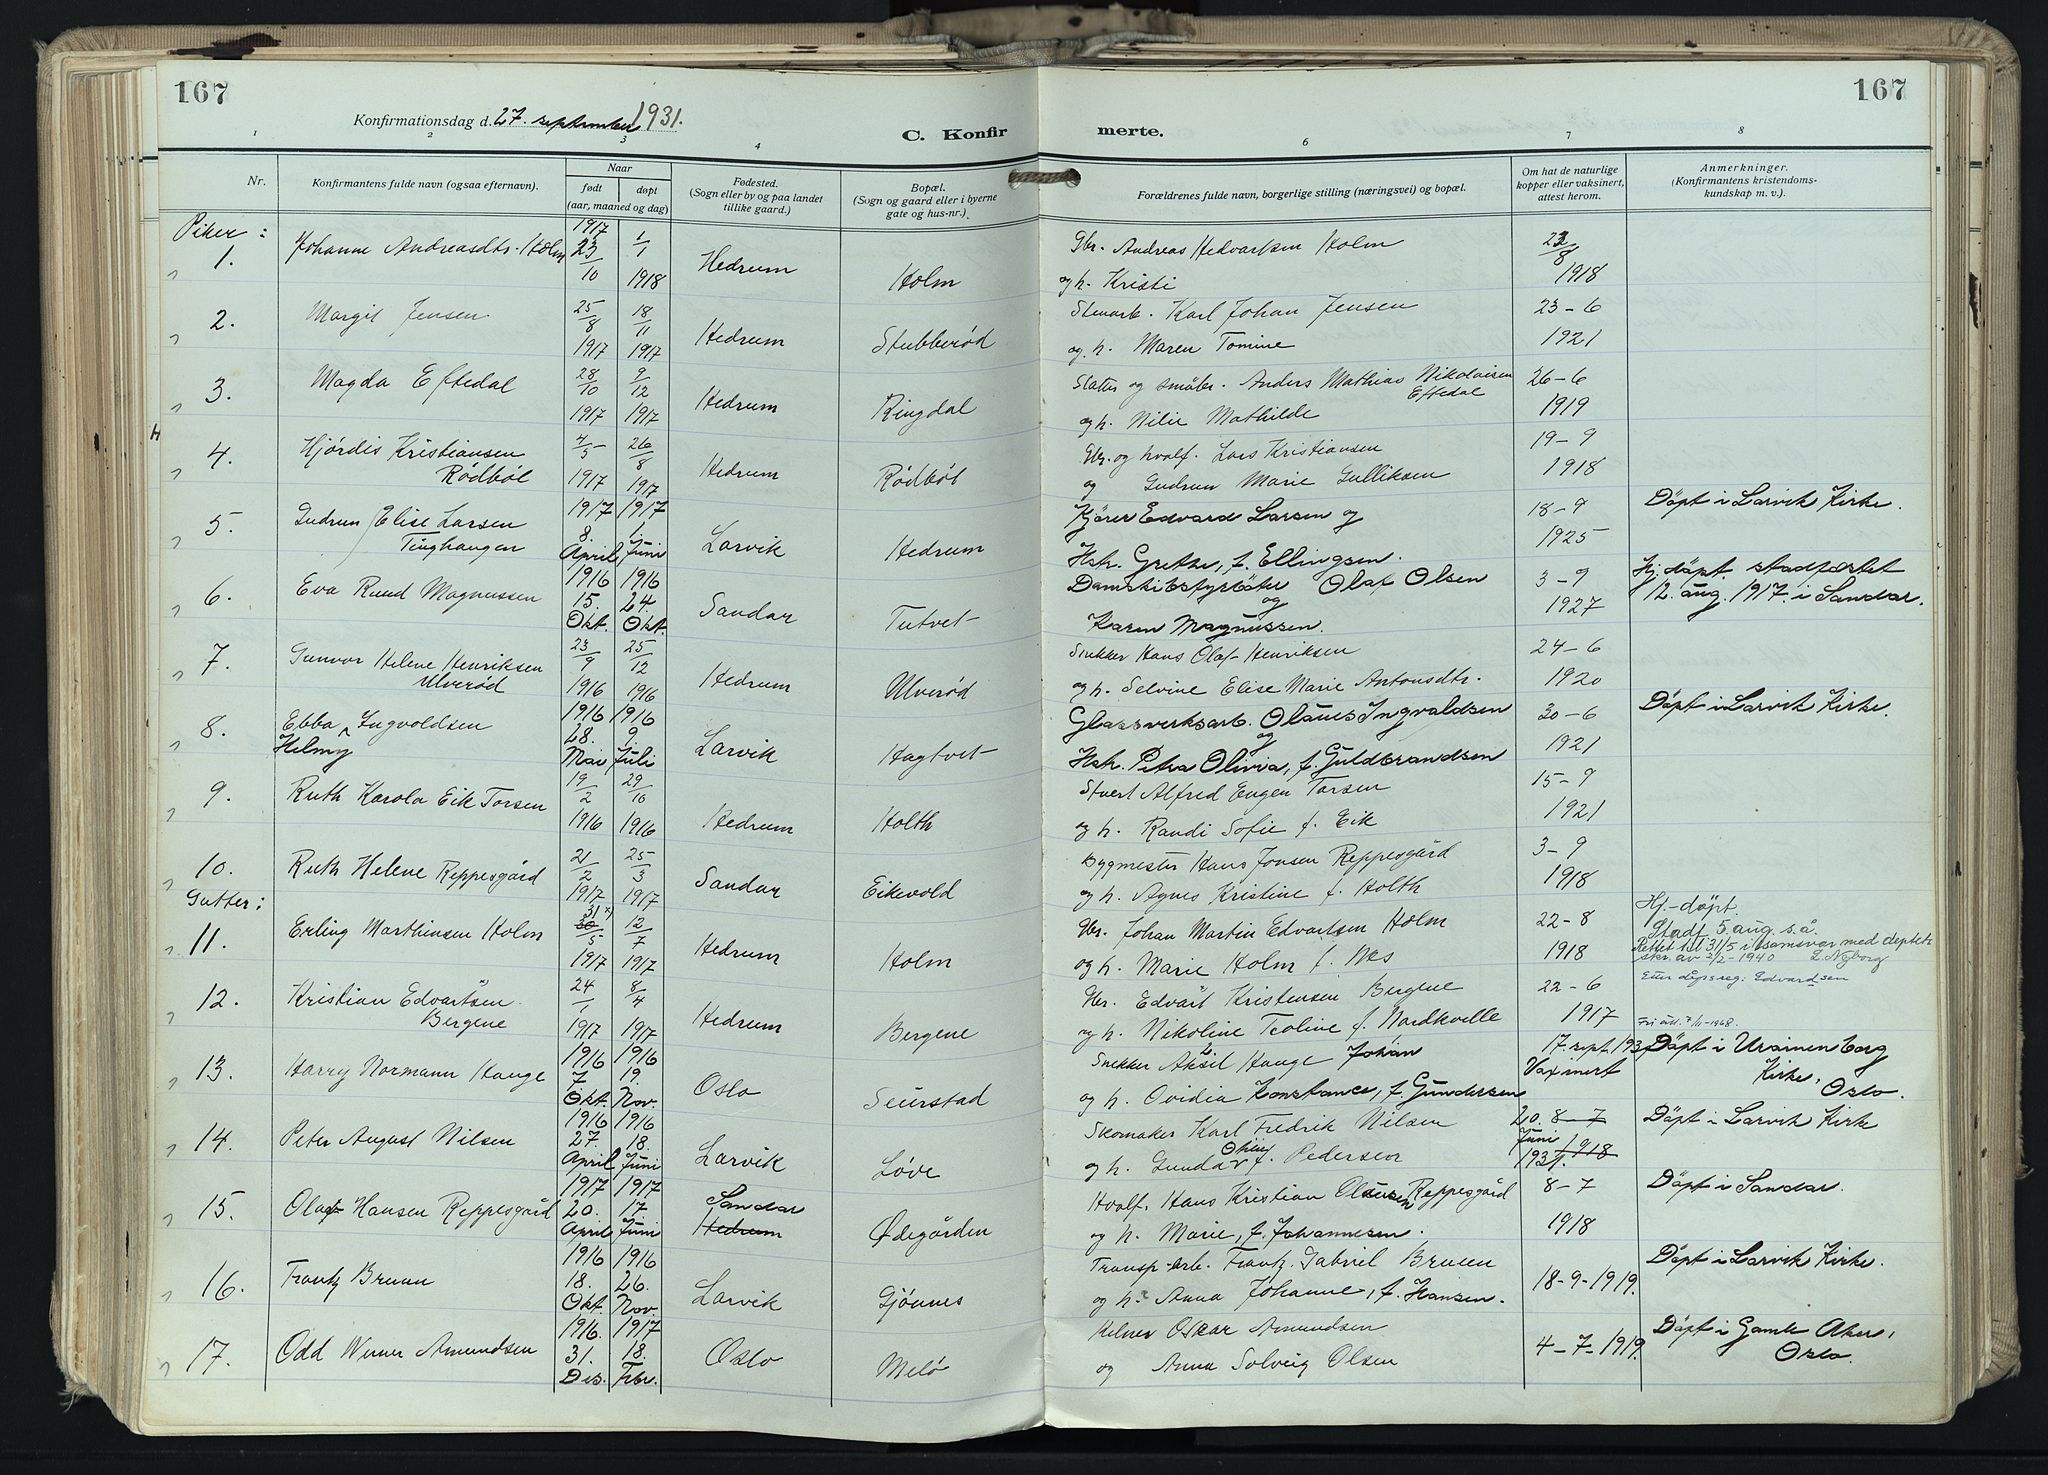 167
167
Konfirmationsdag d. 27. september 1931.
C. Konfirmerte.
1 2 3 4 6 7 8
Nr.
Konfirmantens fulde navn (ogsaa efternavn).
Naar
født
døpt
(aar, maaned og dag)
Fødested.
(Sogn eller by og paa landet
tillike gaard.)
Bopæl.
(Sogn og gaard eller i byerne
gate og hus-nr.)
Forældrenes fulde navn, borgerlige stilling (næringsvei) og bopæl.
Om hat de naturlige
kopper eller vaksinert,
attest herom.
Anmerkninger.
(Konfirmantens kristendoms-
kundskap m. v.).
Piker:
1. Johanne Andreasdtr. Holm 1917 23/10 1/1 1918 Hedrum Holm Gbr. Andreas Hedvartsen Holm
og h. Kristi
8 1918
2. Margit Jensen 25/8 1917 18/11 1917 Hedrum Stubberød Stenarb. Karl Johan Jensen 23-6
og h. Maren Tomine 1921
3. Magda Eftedal 28/10 1917 9/12 1917 Hedrum Ringdal Slakter og småbr. Anders Mathias Nikolaisen 26-6
Eftedal
og h. Nilie Mathilde 1919
H
4. Hjørdis Kristiansen 4/5 1917 26/8 1917 Hedrum Rødbøl Gbr. og hvalf. Lars Kristiansen 19-9
Rødbøl
og Gudrun Marie Gulliksen 1918
5. Gudrun Elise Larsen 1917 8. April 1917 1. Juni Larvik Hedrum Kjører Edvard Larsen og 18-9 Døpt i Larvik Kirke.
Tinghaugen
Hstr. Grethe, f. Ellingsen. 1925
6. Eva Ruud Magnussen 1916 15. Okt. 1916 24. Okt. Sandar Tutvet Damskibsfyrbøter Olaf Olsen 3-9 Hj. døpt. stadfæstet
og
Karen Magnussen. 1927 12. aug. 1917 i Sandar.
7. Gunvor Helene Henriksen 23/9 1916 25/12 1916 Hedrum Ulverød Snekker Hans Olaf Henriksen 24-6
Ulverød
og h. Selvine Elise Marie Antonsdtr. 1920
8. Ebba Ingvoldsen 1916 28. Mai 1916 9. Juli Larvik Hagtvet Glassverksarb. Olaues Ingvaldsen 30-6 Døpt i Larvik Kirke.
Helmy
og
Hstr. Petra Olivia, f. Guldbrandsen 1921
9. Ruth Karola Eik Torsen 19/2 1916 29/10 1916 Hedrum Holth Stuert Alfred Eugen Torsen 15-9
og h. Randi Sofie f. Eik 1921
10. Ruth Helene Reppesgård 21/2 1917 25/3 1917 Sandar Eikevold Bygmester Hans Jonsen Reppesgård 3-9
og h. Agnes Kristine f. Holth 1918
Gutter:
11. Erling Marthinsen Holm 31 x) 30/5 1917 12/7 1917 Hedrum Holm Gbr. Johan Martin Edvartsen Holm 22-8 Hj.-døpt.
Stadf. 5. aug. s.å.
og h. Marie Holm f. Nes 1918 Rettet til 31/5 i samsvar med deptets
skr. av 3/2-1940 L. Nyborg
12. Kristian Edvartsen 24/1 1917 8/4 1917 Hedrum Bergene Gbr. Edvart Kristensen Bergene 22-6 Etter dåpsreg: Edvardsen
Bergene
og h. Nikoline Teoline f. Nordkville 1917 7/11-1968.
13. Harry Normann Hauge 1916 7 Okt. 1916 19. Nov. Oslo Seierstad Snekker Aksil Hauge Johan 17. sept. 193 Døpt i Uranienborg
og h. Ovidia Konstance, f. Gundersen Vaxinert Kirke, Oslo.
14. Peter August Nilsen 1916 27. April 1916 18. Juni Larvik Løve Skomaker Karl Fredrik Nilsen 20. 8-7 Døpt i Larvik Kirke
og h. Gunda f. Pedersen Juni 1931. 1918
15. Olaf Hansen Reppesgård 1917 20. April 1917 17 Juni Sandar Hedrum Ødegården Hvalf. Hans Kristian Olausen Reppesgård 8-7 Døpt i Sandar.
og h. Marie, f. Johannesen. 1918
16. Frantz Bruun 1916 18. Okt. 1916 26. Nov. Larvik Gjønnes Transp-arb. Frantz Gabriel Bruun 18-9-1919. Døpt i Larvik Kirke.
og h. Anna Johanne, f. Hansen.
17. Odd Werner Amundsen 1916. 31. Des. 1917 18. Febr. Oslo Melø Kelner Oskar Amundsen 4-7-1919. Døpt i Gamle Aker,
og Anna Solveig Olsen Oslo.